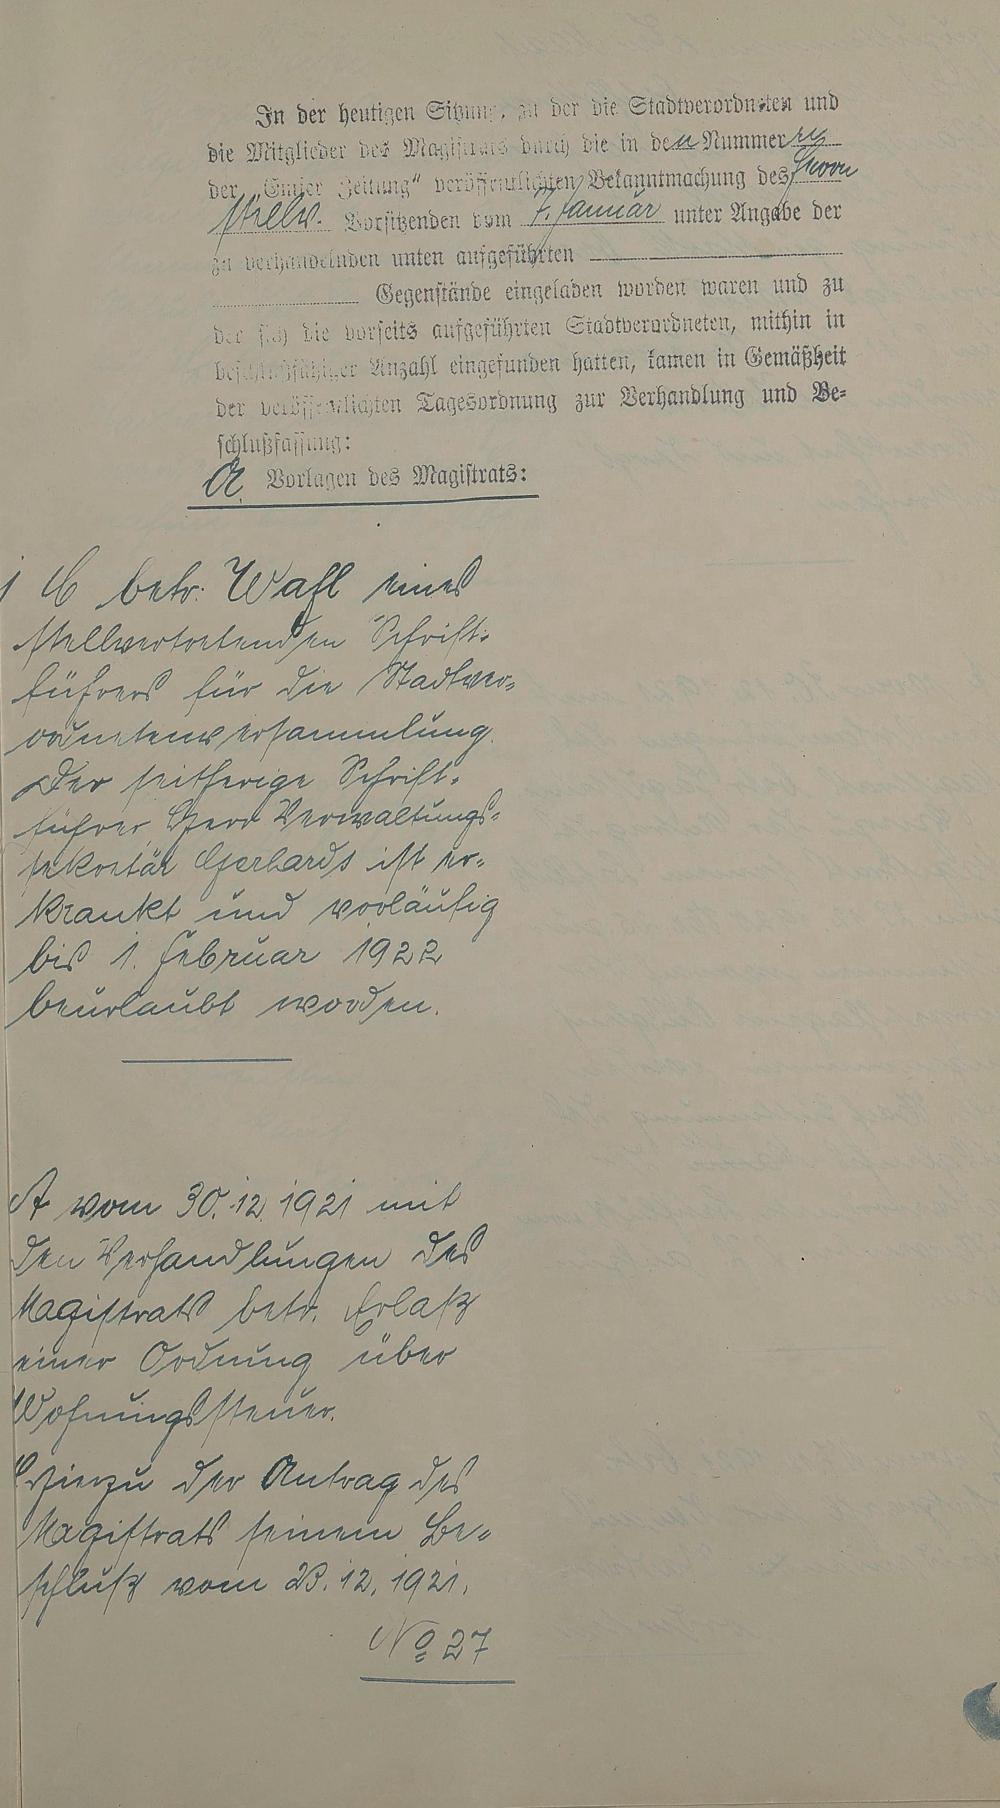 In der heutigen Sitzung, zu der die Stadtverordneten und
die Mitglieder des Magistrats durch die in den Nummer
der „Emser Zeitung“ veröffentlichten Bekanntmachung des Herrn
stellv. Vorsitzenden vom 7. Januar unter Angabe der
zu verhandelnden unten aufgeführten
Gegenstände eingeladen worden waren und zu
der sich die vorseits aufgeführten Stadtverordneten, mithin in
beschlußfähiger Anzahl eingefunden hatten, kamen in Gemäßheit
der veröffentlichten Tagesordnung zur Verhandlung und Be-
schlußfassung:
A. Vorlagen des Magistrats:
betr. Wahl eines
stellvertretenden Schrift-
führers für die Stadtver-
ordnetenversammlung.
Der seitherige Schrift-
führer Herr Verwaltungs-
sekretär Gerhards ist er-
krankt und vorläufig
bis 1. Februar 1922
beurlaubt worden.
vom 30.12.1921 mit
den Verhandlungen des
Magistrats betr. Erlaß
einer Ordnung über
Wohnungssteuer.
Hierzu der Antrag des
Magistrats seinem Be-
schluß vom 23.12.1921.
No 27